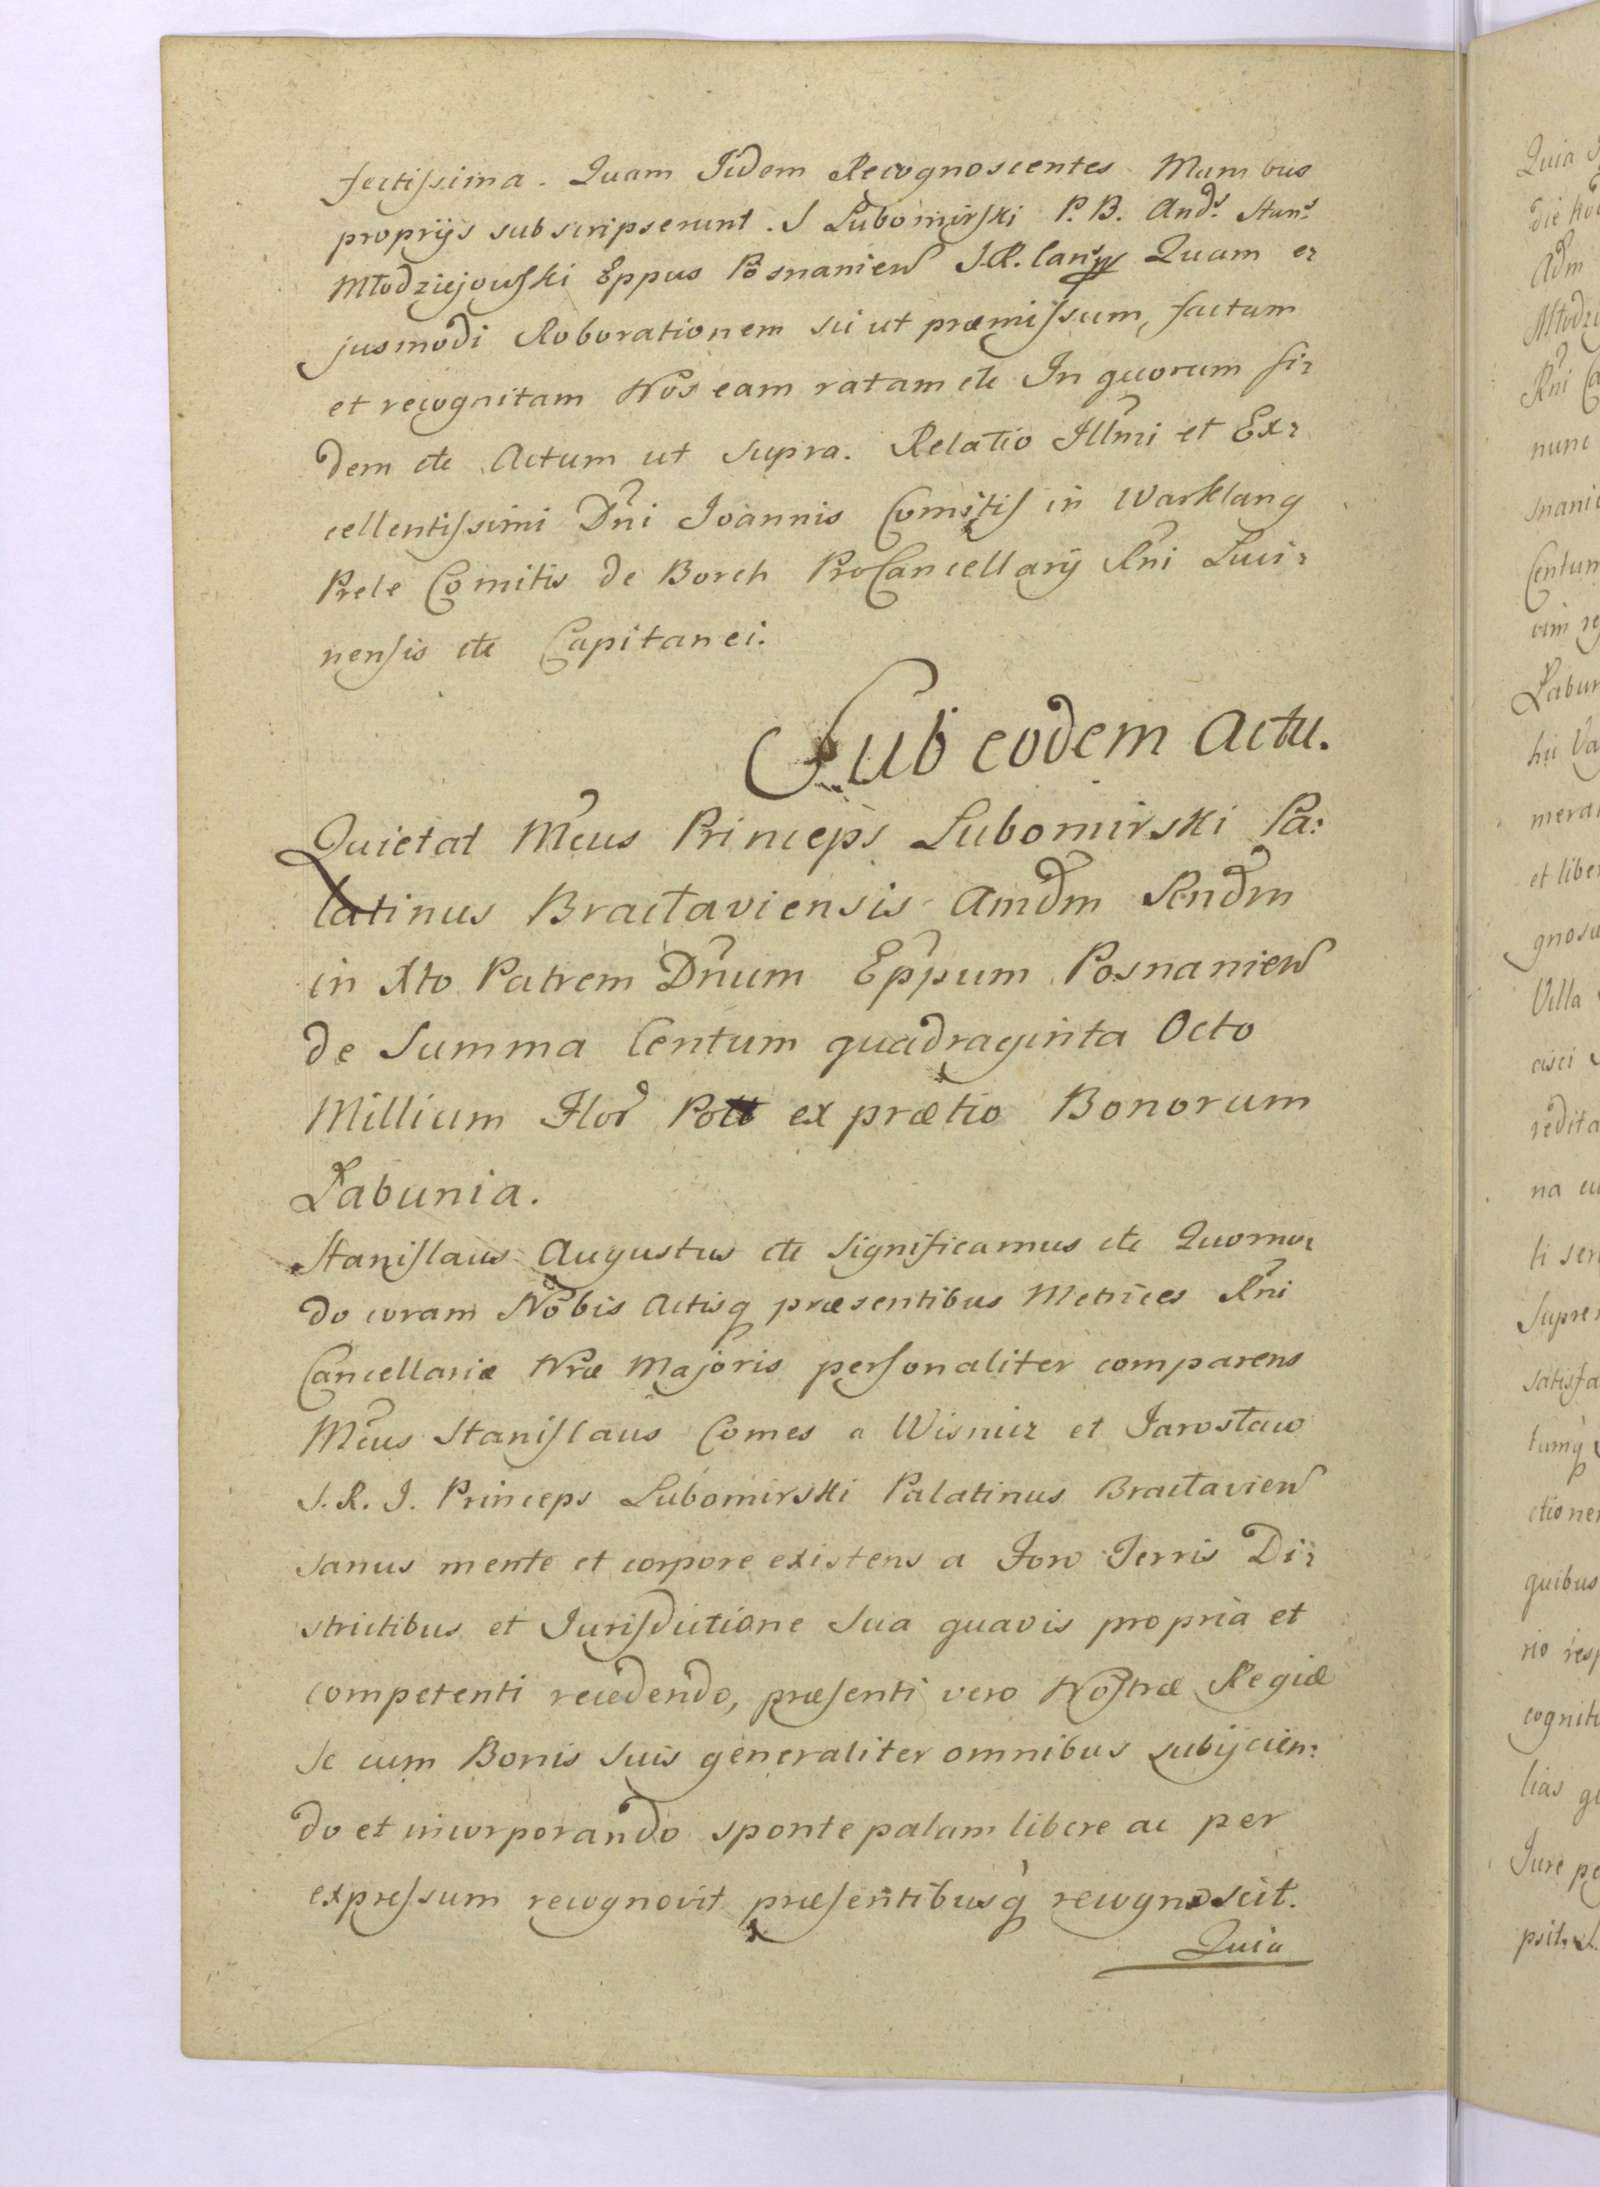 fectissima. Quam Iidem Recognoscentes Manibus
proprijs subscripserunt. S Lubomirski P. B. Andr. Stan.
Młodziejowski Eppus Posnanien S.R. Canc. Quam e-
jusmodi Roborationem sic ut præmissum, factam
et recognitam Nos eam ratam etc In quorum fi-
dem etc Actum ut supra. Relatio Illmi et Ex-
cellentissimi Dni Joannis Comitis in Warklany
Prele Comitis de Borch ProCancellarij Rni Luci-
nensis etc Capitanei.
Sub eodem actu.
Quietat Mcus Princeps Lubomirski Pa:
latinus Bracłaviensis Amdm Rndm
in Xto Patrem Dnum Eppum Posnanien
de Summa Centum quadraginta Octo
Millium Flor Poll ex prætio Bonorum
Łabunia.
Stanislaus Augustus etc Significamus etc Quomo-
do coram Nobis Actisq præsentibus Metrices Rni
Cancellariæ Nræ Majoris personaliter comparens
Mcus Stanislaus Comes a Wisnicz et Jarosław
S. R. I. Princeps Lubomirski Palatinus Bracłavien
sanus mente et corpore existens a Foro Terris Di-
strictibus et Jurisdictione sua quavis propria et
competenti recedendo, præsenti vero Nostræ Regiæ
se cum Bonis suis generaliter omnibus subijcien:
do et incorporando sponte palam libere ac per
expressum recognovit præsentibusq recognoscit.
Quia